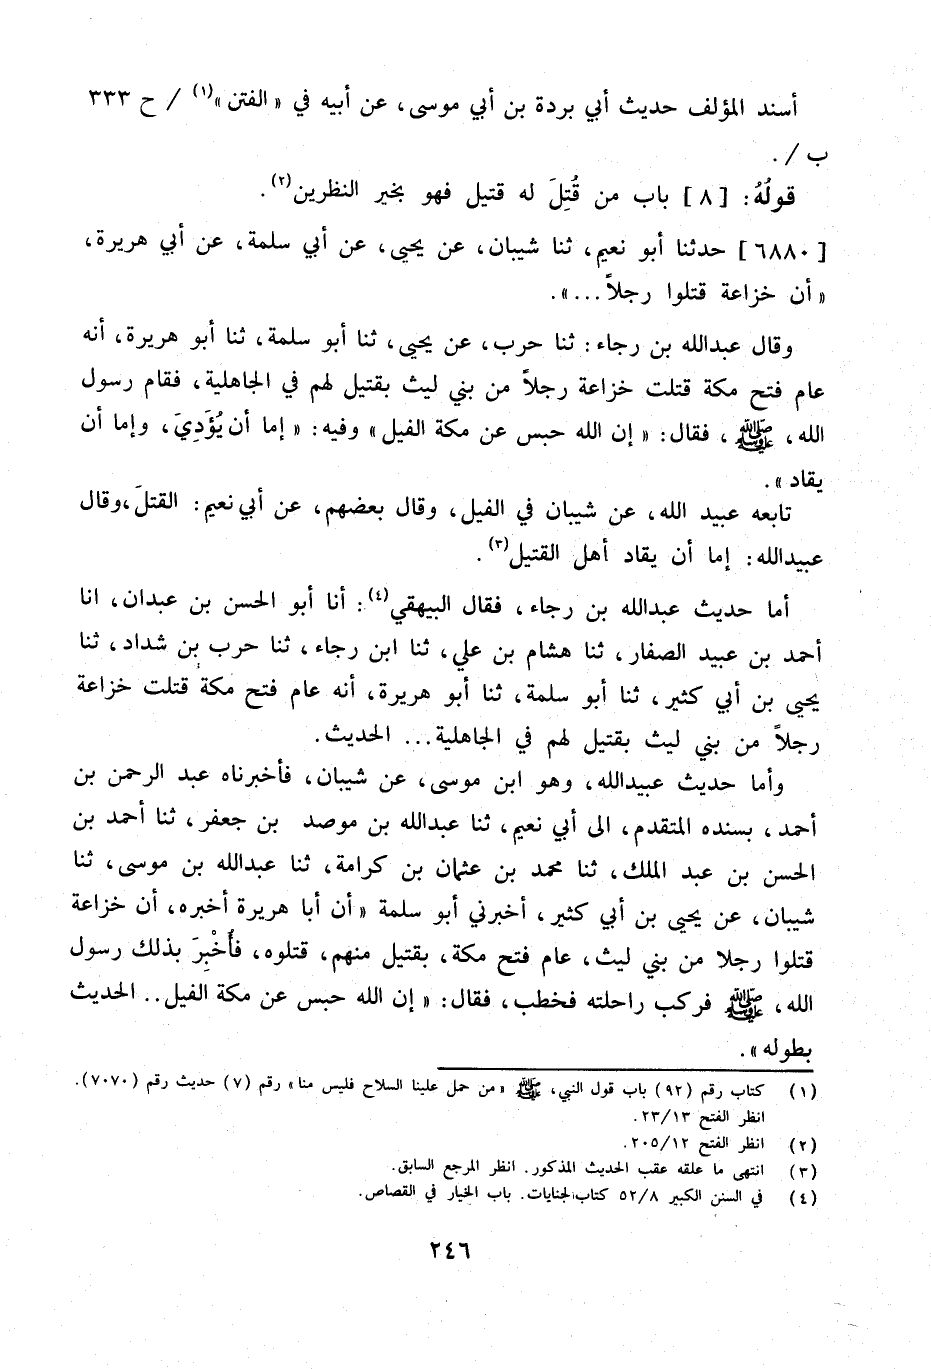 أسند المؤلف حديث أبي بردة بن أبي موسى، عن أبيه في « الفتن »(١) / ح ٣٣٣
ب /.
قولُهُ: [٨] باب من قُتِلَ له قتيل فهو بخير النظرين(٢).
[٦٨٨٠] حدثنا أبو نعيم، ثنا شيبان، عن يحيى، عن أبي سلمة، عن أبي هريرة،
« أن خزاعة قتلوا رجلاً...».
وقال عبدالله بن رجاء: ثنا حرب، عن يحيى، ثنا أبو سلمة، ثنا أبو هريرة، أنه
عام فتح مكة قتلت خزاعة رجلاً من بني ليث بقتيل لهم في الجاهلية، فقام رسول
الله، ﷺ، فقال: « إن الله حبس عن مكة الفيل » وفيه: « إما أن يُؤَدِيَ، وإما أن
يقاد ».
تابعه عبيد الله، عن شيبان في الفيل، وقال بعضهم، عن أبي نعيم: القتلَ،وقال
عبيدالله: إما أن يقاد أهل القتيل(٣).
أما حديث عبدالله بن رجاء، فقال البيهقي(٤): أنا أبو الحسن بن عبدان، انا
أحمد بن عبيد الصفار، ثنا هشام بن علي، ثنا ابن رجاء، ثنا حرب بن شداد، ثنا
يحيى بن أبي كثير، ثنا أبو سلمة، ثنا أبو هريرة، أنه عام فتح مكة قتلت خزاعة
رجلاً من بني ليث بقتيل لهم في الجاهلية... الحديث.
وأما حديث عبيدالله، وهو ابن موسى، عن شيبان، فأخبرناه عبد الرحمن بن
أحمد، بسنده المتقدم، الى أبي نعيم، ثنا عبدالله بن موصد بن جعفر، ثنا أحمد بن
الحسن بن عبد الملك، ثنا محمد بن عثمان بن كرامة، ثنا عبدالله بن موسى، ثنا
شيبان، عن يحيى بن أبي كثير، أخبرني أبو سلمة « أن أبا هريرة أخبره، أن خزاعة
قتلوا رجلا من بني ليث، عام فتح مكة، بقتيل منهم، قتلوه، فأُخْبِرَ بذلك رسول
الله، ﷺ فركب راحلته فخطب، فقال: « إن الله حبس عن مكة الفيل.. الحديث
بطوله ».
(١) كتاب رقم (٩٢) باب قول النبي، ﷺ « من حمل علينا السلاح فليس منا » رقم (٧) حديث رقم (٧٠٧٠).
انظر الفتح ٢٣/١٣.
(٢) انظر الفتح ٢٠٥/١٢.
(٣) انتهى ما علقه عقب الحديث المذكور. انظر المرجع السابق.
(٤) في السنن الكبير ٥٢/٨ كتاب الجنايات. باب الخيار في القصاص.
٢٤٦